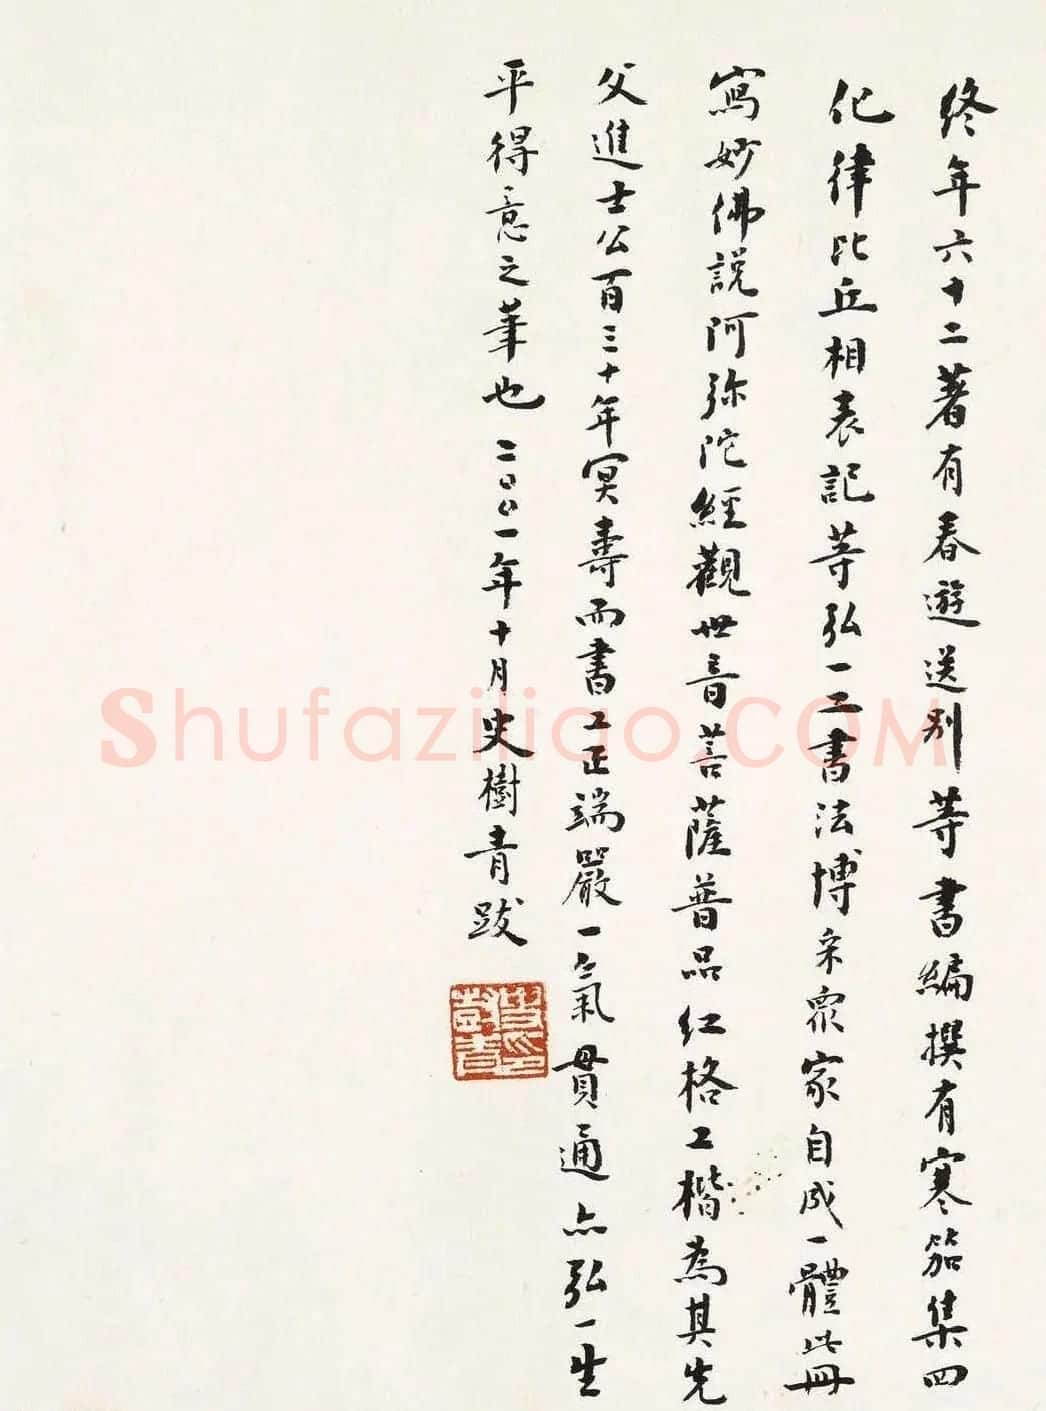 终年六十二著有春遊送别等書編撰有寒笳集四
化律比丘相表記等弘一工書法博采眾家自成一體此冊
寫妙佛説阿弥陀經觀世音菩薩普品红格工楷為其先
父進士公百三十年冥壽而書工正端嚴一氣貫通亦弘一生
平得意之筆也二〇〇一年十月史樹青跋
史樹青印
Shufaziliao.COM